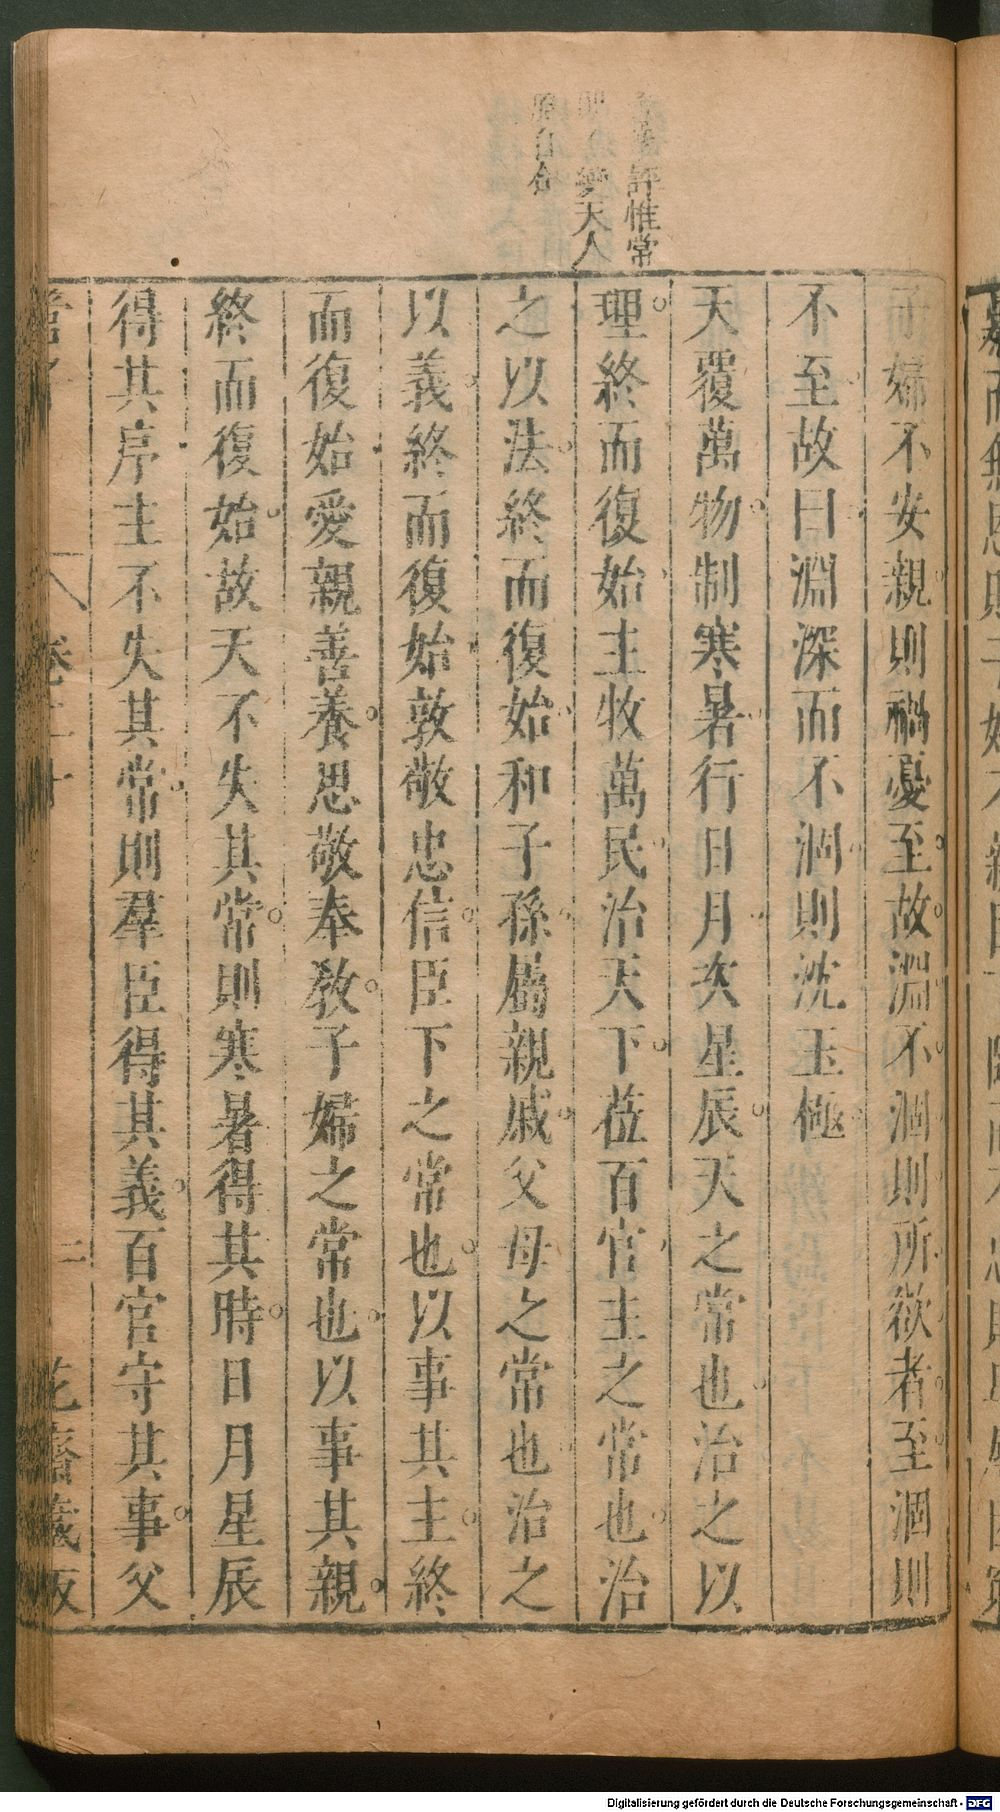 評惟常
變天人
自合
子婦不安親則禍憂至故淵不涸則所欲者至涸則
不至故曰淵深而不涸則沈玉極
天覆萬物制寒暑行日月次星辰天之常也治之以
理終而復始主牧萬民治天下莅百官主之常也治
之以法終而復始和子孫屬親戚父母之常也治之
以義終而復始敦敬忠信臣下之常也以事其主終
而復始愛親善養思敬奉教子婦之常也以事其親
終而復始故天不失其常則寒暑得其時日月星辰
得其序主不失其常則羣臣得其義百官守其事父
管子 卷二十 二 花齋藏板
Digitalisierung gefördert durch die Deutsche Forschungsgemeinschaft - DFG